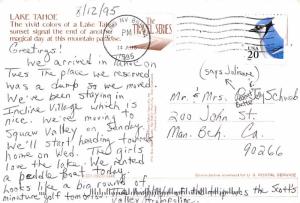 8/12/95
LAKE TAHOE
The vivid colors of a Lake Tahoe
sunset signal the end of another
magical day at this mountain
THE SERIES
NV
PM
USA
20
Greetings!
We arrived in Tahoe on
Tues. The place we reserved
was a dump so we moved.
We've been staying in
Incline Village which is
nice. We're moving to
Squaw Valley on Sunday.
We'll start heading towards
home on Wed. The girls
love the lake. We rented
a peddle boat today.
Looks like a big round of
miniature golf tomorrow
the Scotts
(says Julianne)
Mr. & Mrs. Schwab
200 John St.
Man. Bch. Ca.
90266
U.S. POSTAL SERVICE